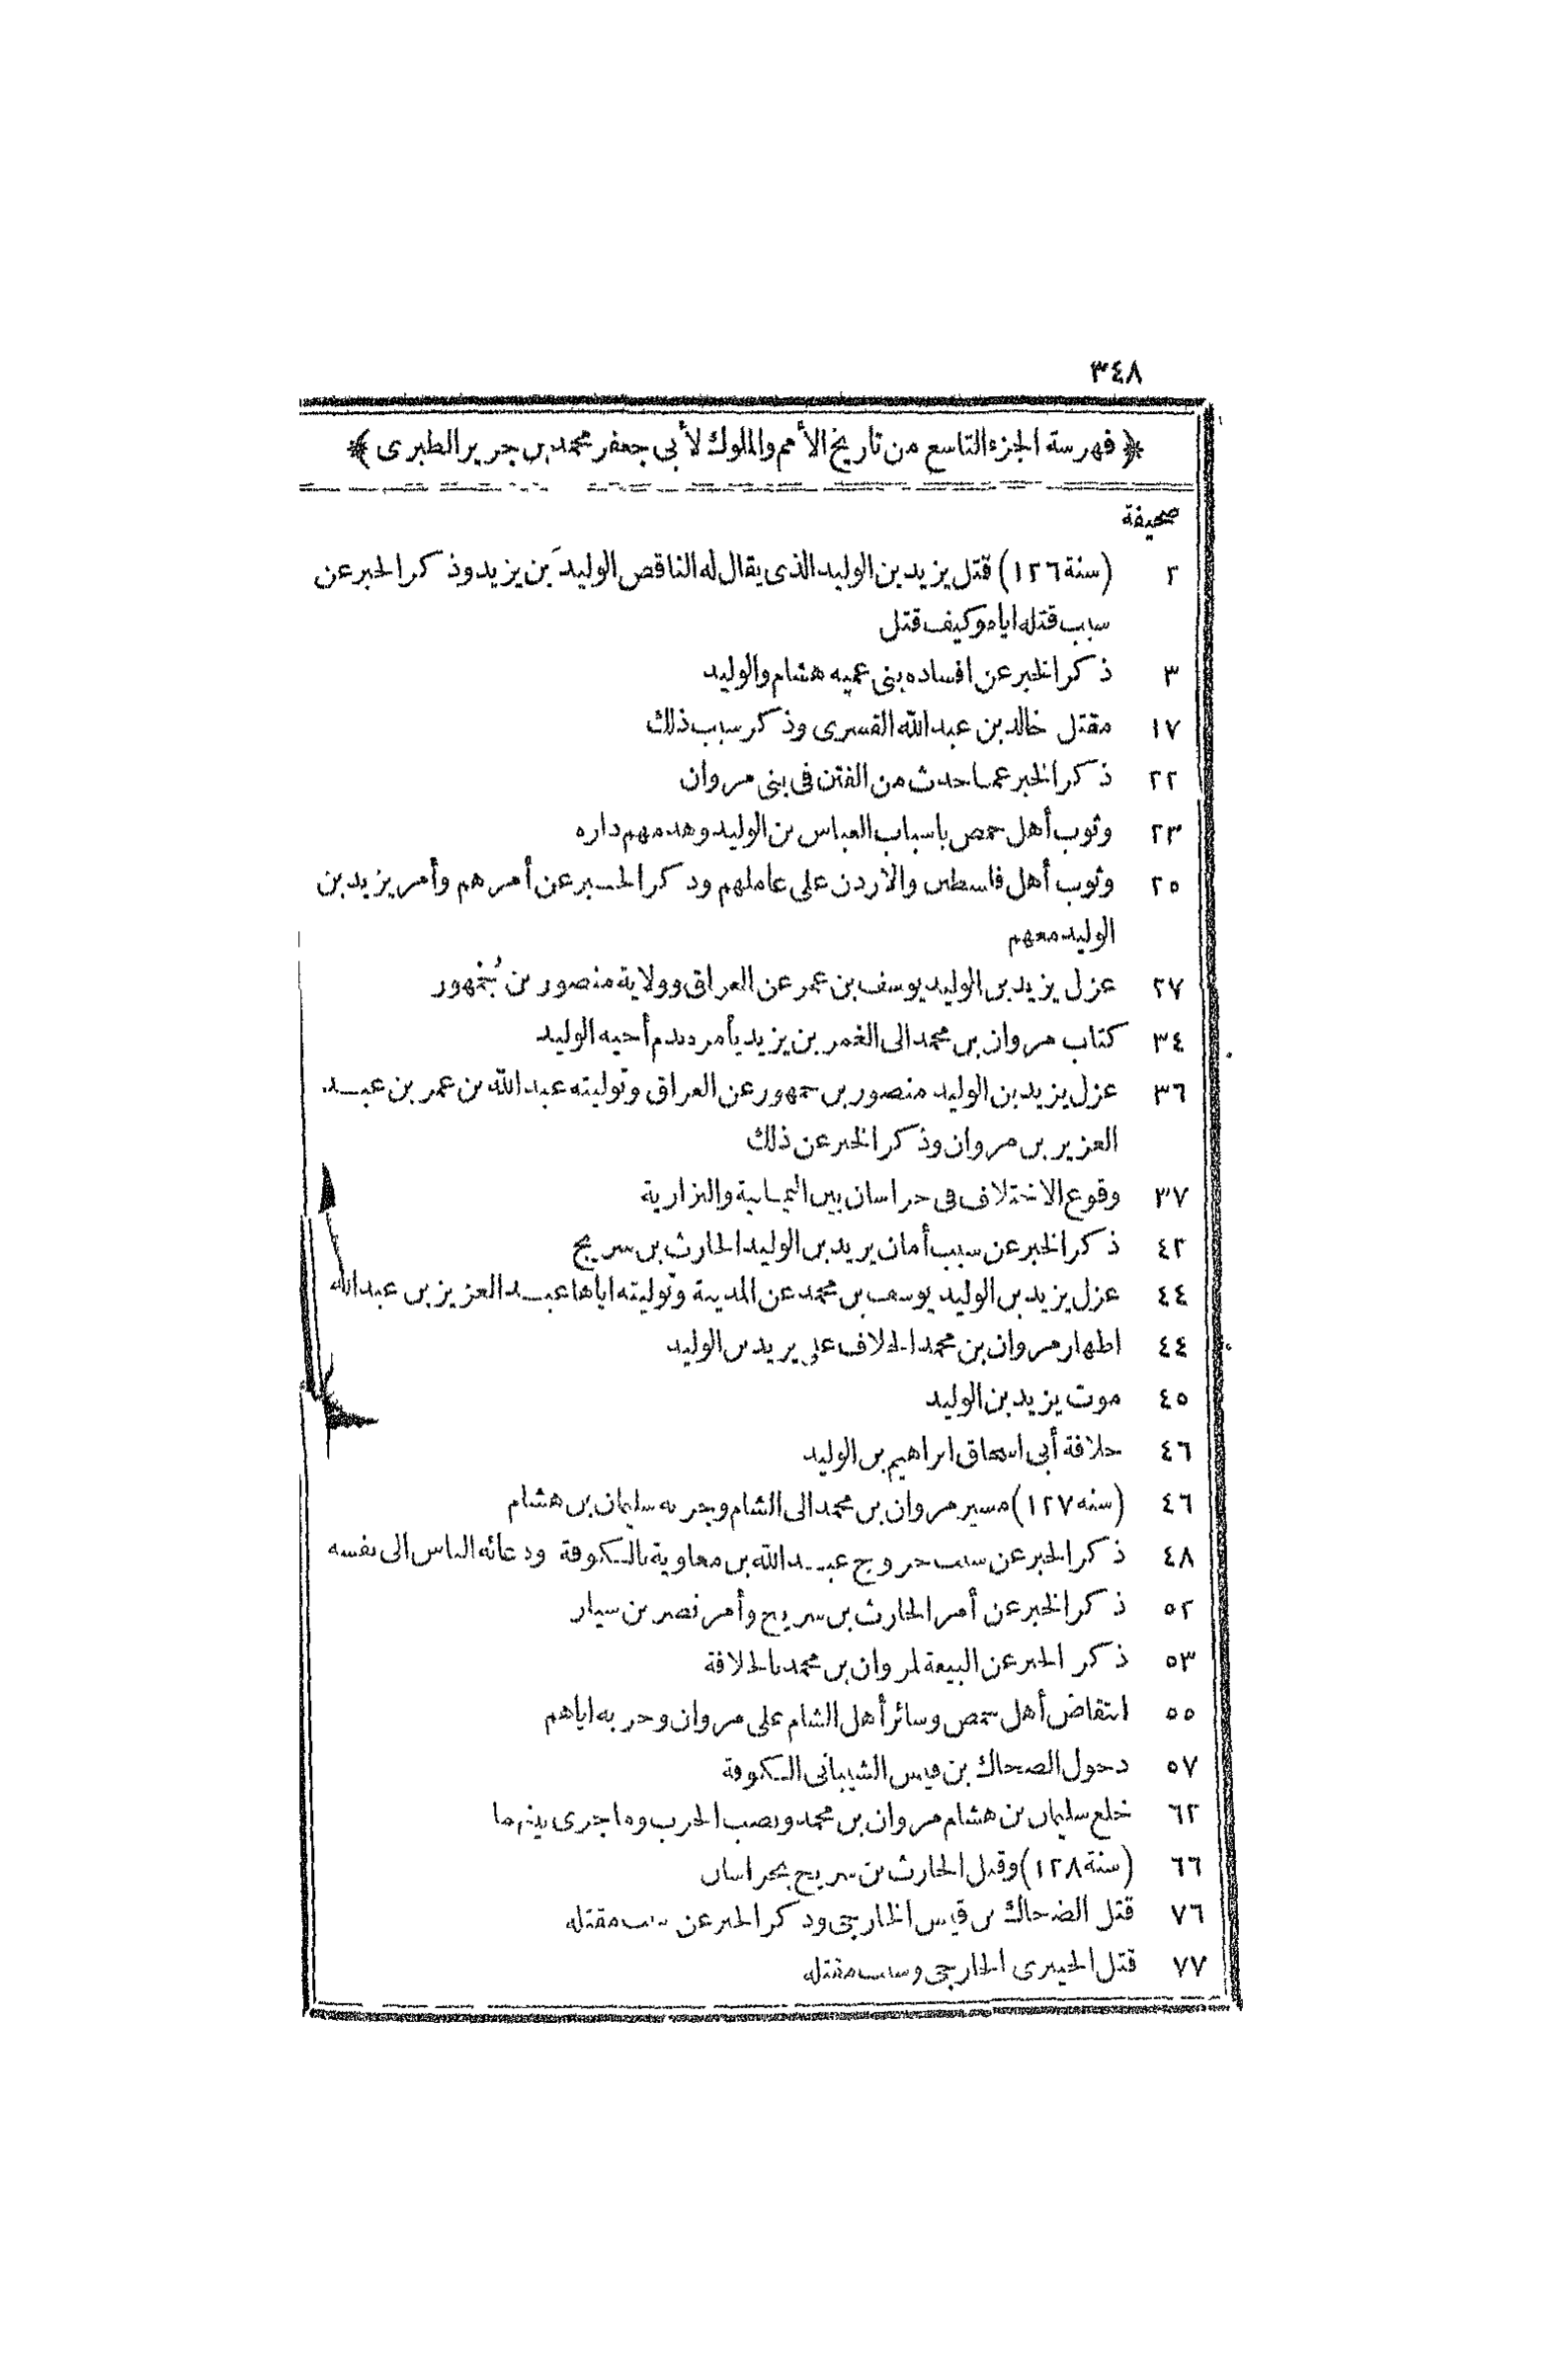 ٣٤٨
﴿ فهرسة الجزء التاسع من تاريخ الأمم والملوك لأبى جعفر محمد بن جرير الطبرى ﴾
صحيفة
٢ (سنة ١٢٦) قتل يزيد بن الوليد الذى يقال له الناقص الوليد بن يزيد وذكر الخبر عن
سبب قتله اياه وكيف قتل
٣ ذكر الخبر عن افساده بنى عميه هشام والوليد
١٧ مقتل خالد بن عبد الله القسرى وذكر سبب ذلك
٢٢ ذكر الخبر عما حدث من الفتن فى بنى مروان
٢٣ وثوب أهل حمص باسباب العباس بن الوليد وهدمهم داره
٢٥ وثوب أهل فلسطين والاردن على عاملهم وذكر الخبر عن أمرهم وأمر يزيد بن
الوليد معهم
٢٧ عزل يزيد بن الوليد يوسف بن عمر عن العراق وولاية منصور بن جُمْهور
٣٤ كتاب مروان بن محمد الى الغمر بن يزيد يأمره بدم أخيه الوليد
٣٦ عزل يزيد بن الوليد منصور بن جمهور عن العراق وتوليته عبد الله بن عمر بن عبد
العزيز بن مروان وذكر الخبر عن ذلك
٣٧ وقوع الاختلاف فى خراسان بين اليمانية والنزارية
٤٢ ذكر الخبر عن سبب أمان يزيد بن الوليد الحارث بن سريج
٤٤ عزل يزيد بن الوليد يوسف بن محمد عن المدينة وتوليته اياها عبد العزيز بن عبد الله
٤٤ اظهار مروان بن محمد الخلاف على يزيد بن الوليد
٤٥ موت يزيد بن الوليد
٤٦ خلافة أبى اسحاق ابراهيم بن الوليد
٤٦ (سنه ١٢٧) مسير مروان بن محمد الى الشام وحربه سليمان بن هشام
٤٨ ذكر الخبر عن سبب خروج عبد الله بن معاوية بالكوفة ودعائه الناس الى نفسه
٥٢ ذكر الخبر عن أمر الحارث بن سريج وأمر نصر بن سيار
٥٣ ذكر الخبر عن البيعة لمروان بن محمد بالخلافة
٥٥ انتقاض أهل حمص وسائر أهل الشام على مروان وحربه اياهم
٥٧ دخول الضحاك بن قيس الشيبانى الكوفة
٦٢ خلع سليمان بن هشام مروان بن محمد ونصب الحرب وما جرى بينهما
٦٦ (سنة ١٢٨) وقتل الحارث بن سريج بخراسان
٧٦ قتل الضحاك بن قيس الخارجى وذكر الخبر عن سبب مقتله
٧٧ قتل الخيبرى الخارجى وسبب مقتله